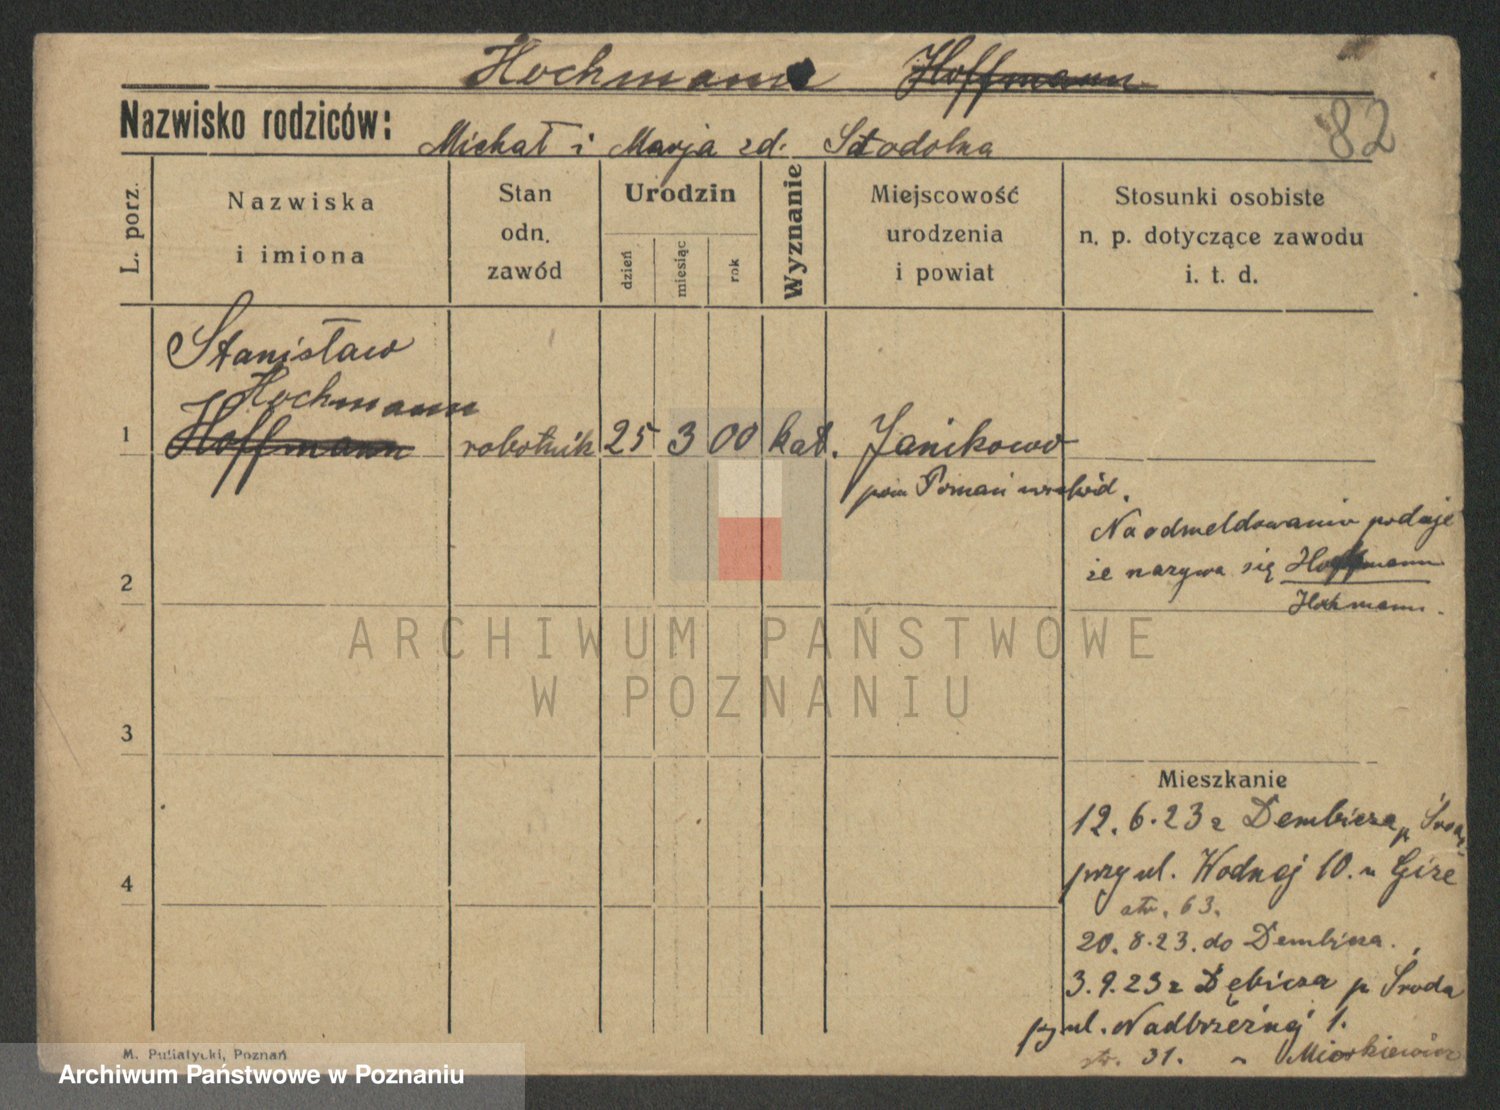 Hochmann Hoffmann
82
Nazwisko rodziców: Michał i Marja zd. Stodolna
L. porz.
Nazwiska i imiona
Stan odn. zawód
Urodzin
dzień miesiąc rok
Wyznanie
Miejscowość urodzenia i powiat
Stosunki osobiste n. p. dotyczące zawodu i. t. d.
Stanisław
Hochmann
1 Hoffmann robotnik 25 3 00 kat. Janikowo
pow Poznań wschód.
Na odmeldowaniu podaje
2 że nazywa się Hoffmann
Hochmann.
ARCHIWUM PAŃSTWOWE
W POZNANIU
3
Mieszkanie
12.6.23 z Dembicza p Środa
przy ul. Wodnej 10. u Gize
4
str. 63.
20.8.23. do Dembicza.
3.9.23 z Dębicza p Środa
py ul. Nadbrzeżnej 1.
str. 31. u
M. Putiatycki, Poznań
Archiwum Państwowe w Poznaniu